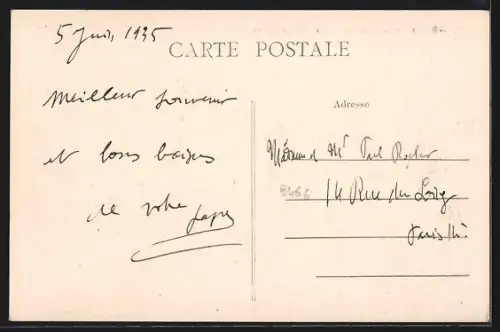 5 Juin, 1935
CARTE POSTALE
Meilleur souvenir
et bons baisers
de votre papa
Adresse
Madame et Mr Paul
14 Rue du Loing
Paris